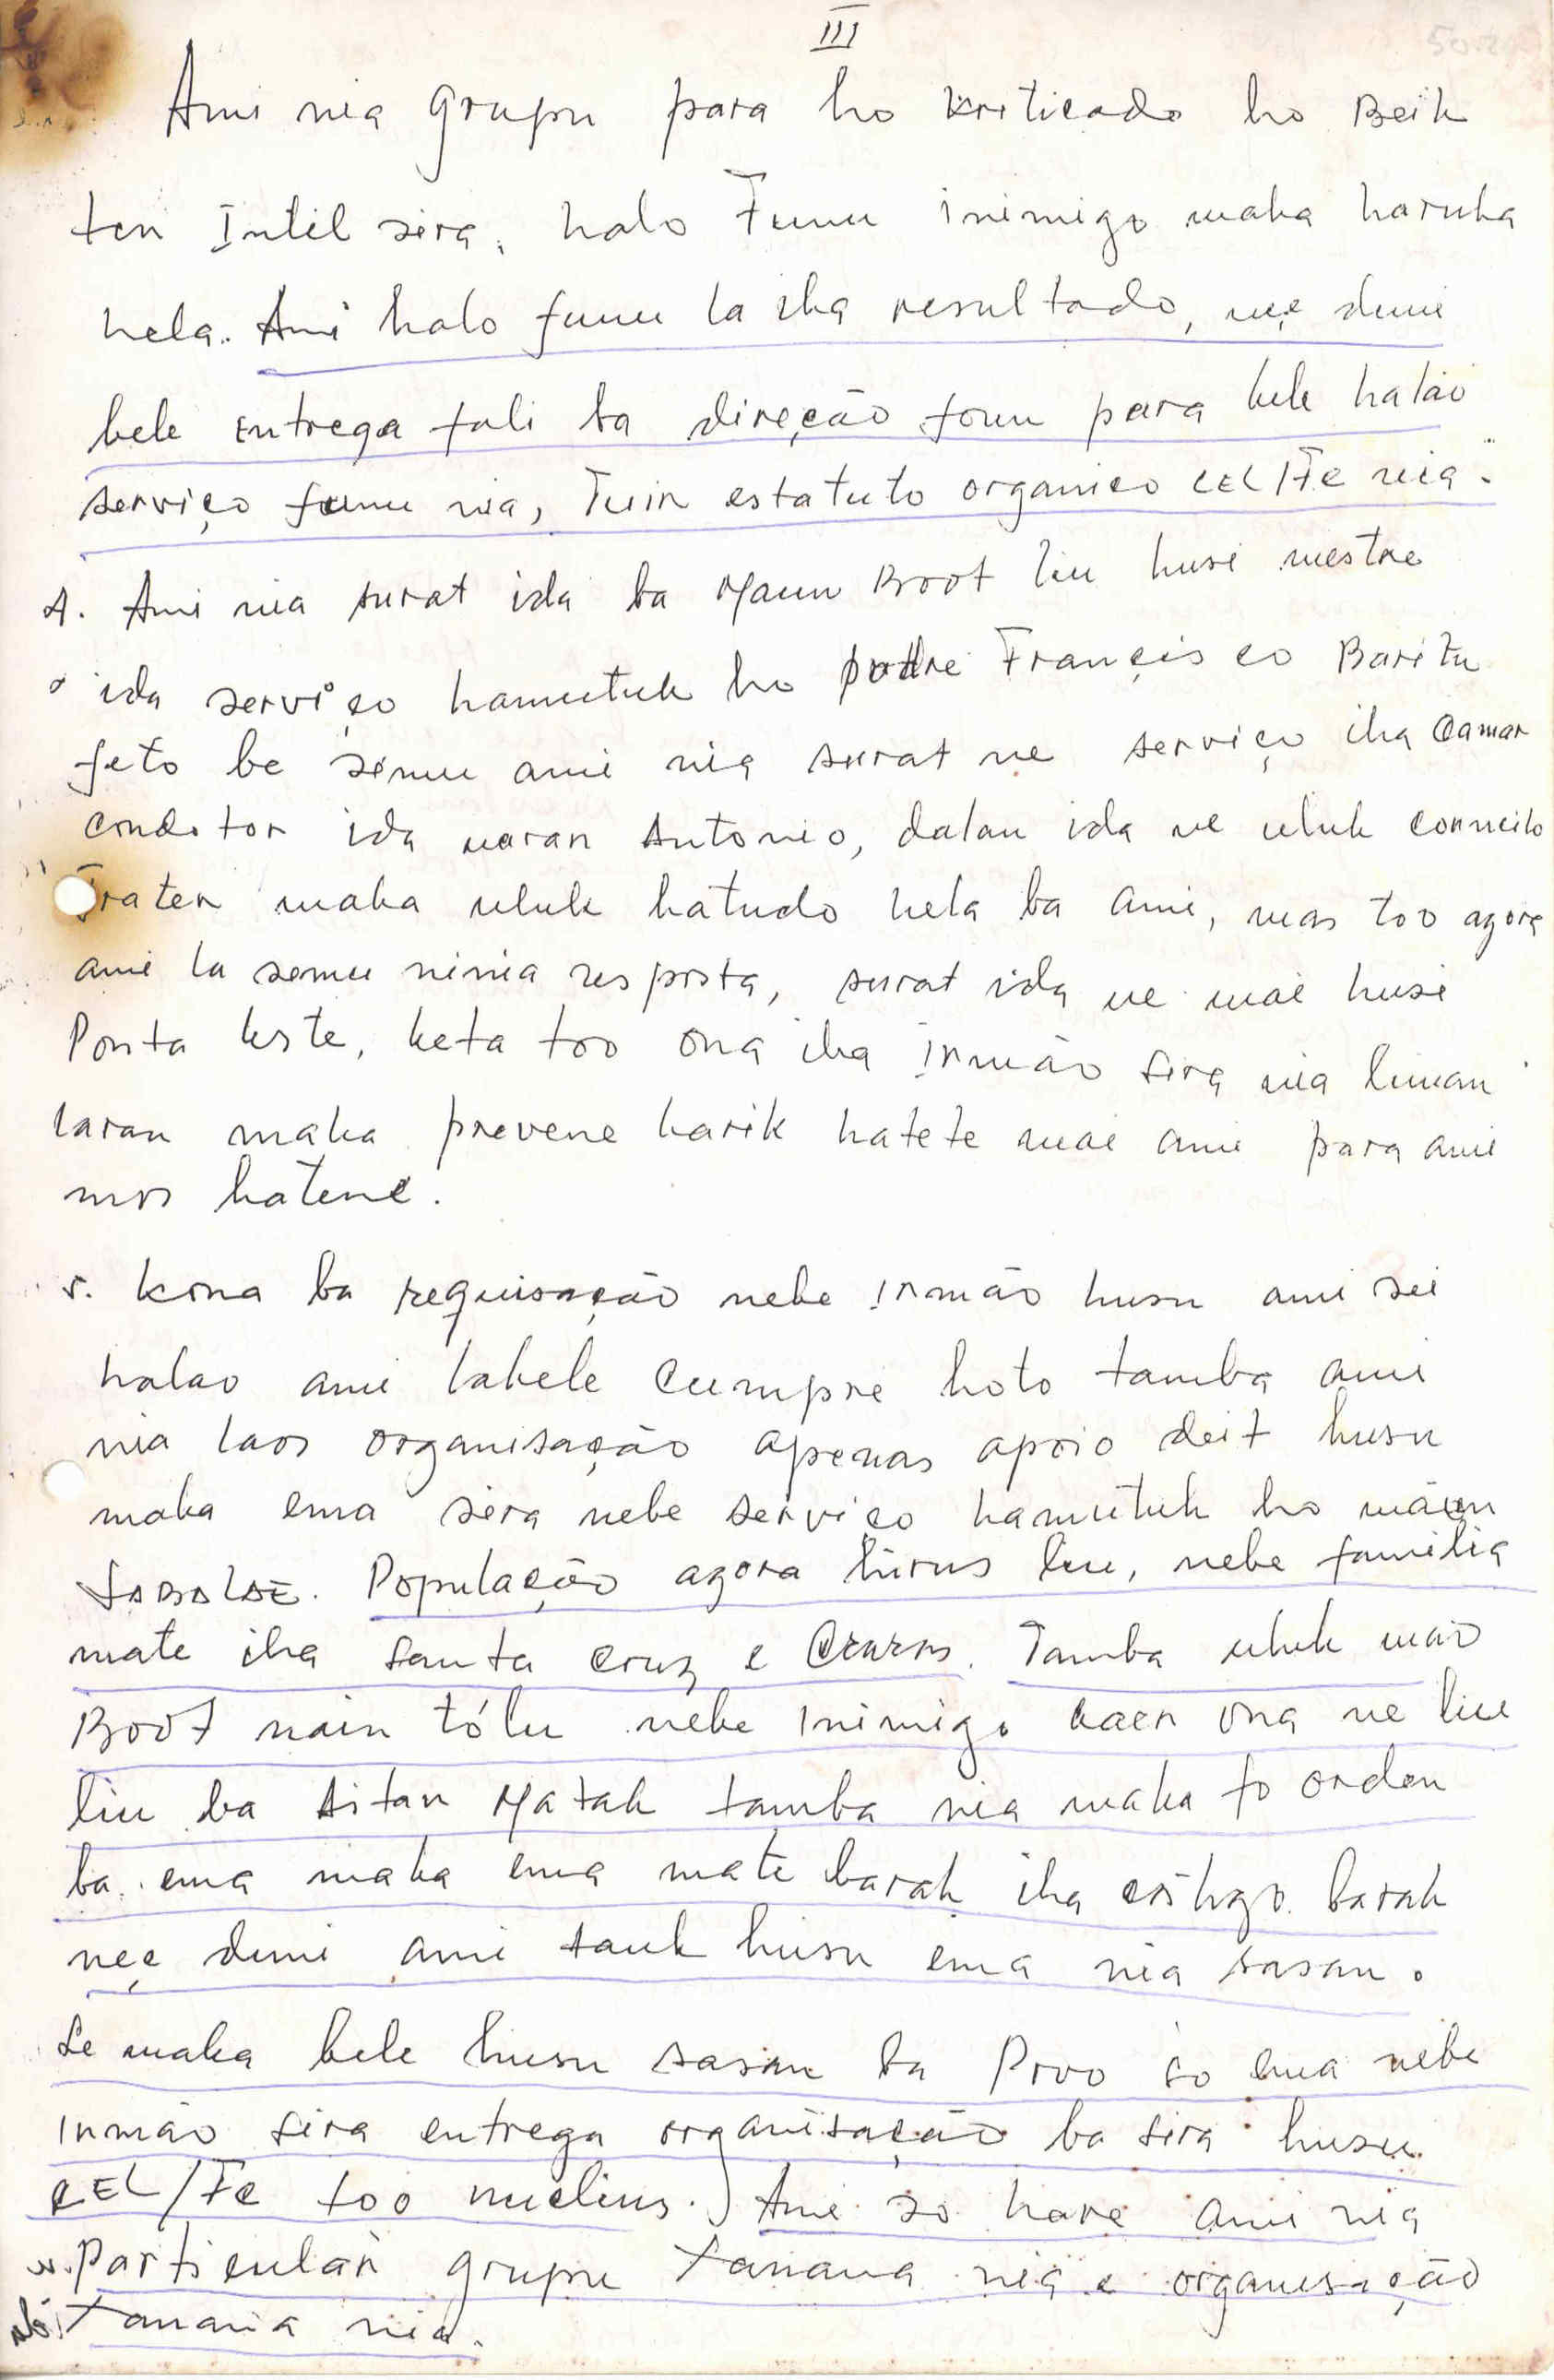 III
Ami nia grupu para ho kriticado ho Beik
ten Intel sira, halo Funu inimigo maka haruka
hela. Ami halo funu la iha resultado, neẹ duni
bele entrega fali ba direção foun para bele halao
serviço funu nia, Tuir estatuto organico CEL/FC nia.
4. Ami nia surat ida ba Maun Boot liu husi mestre
ida serviço hamutuk ho padre Francisco Baritu
feto be simu ami nia surat ne serviço iha Camar
condotor ida naran Antonio, dalan ida ne uluk conneilo
Frater maka uluk hatudo hela ba ami, mas too agora
ami la semu ninia resposta, surat ida ne mai husi
Ponta leste, keta too ona iha inmão sira nia liman
laran maka prevene harik hatete mai ami para ami
mos hatene.
5. kona ba requisação nebe inmão husu ami sei
halao ami labele cumpre hoto tamba ami
nia laos organisação apenas apoio deit husu
maka ema sira nebe serviço hamutuk ho máun
SABALAE. População agora hirus liu, nebe familia
mate iha Santa cruz e Craras. Tamba uluk mão
Boot nain tólu nebe inimigo kaer ona ne liu
liu ba Aitan Matak tamba nia maka fo orden
ba ema maka ema mate barak iha barak
neẹ duni ami tauk husu ema nia sasan.
Se maka bele husu sasan ba Povo so ema nebe
inmão sira entrega organisação ba sira husu
CEL/FC too nuclius. Ami so hare ami nia
Particular grupu Xanana nia e organisação
Xanana nia.